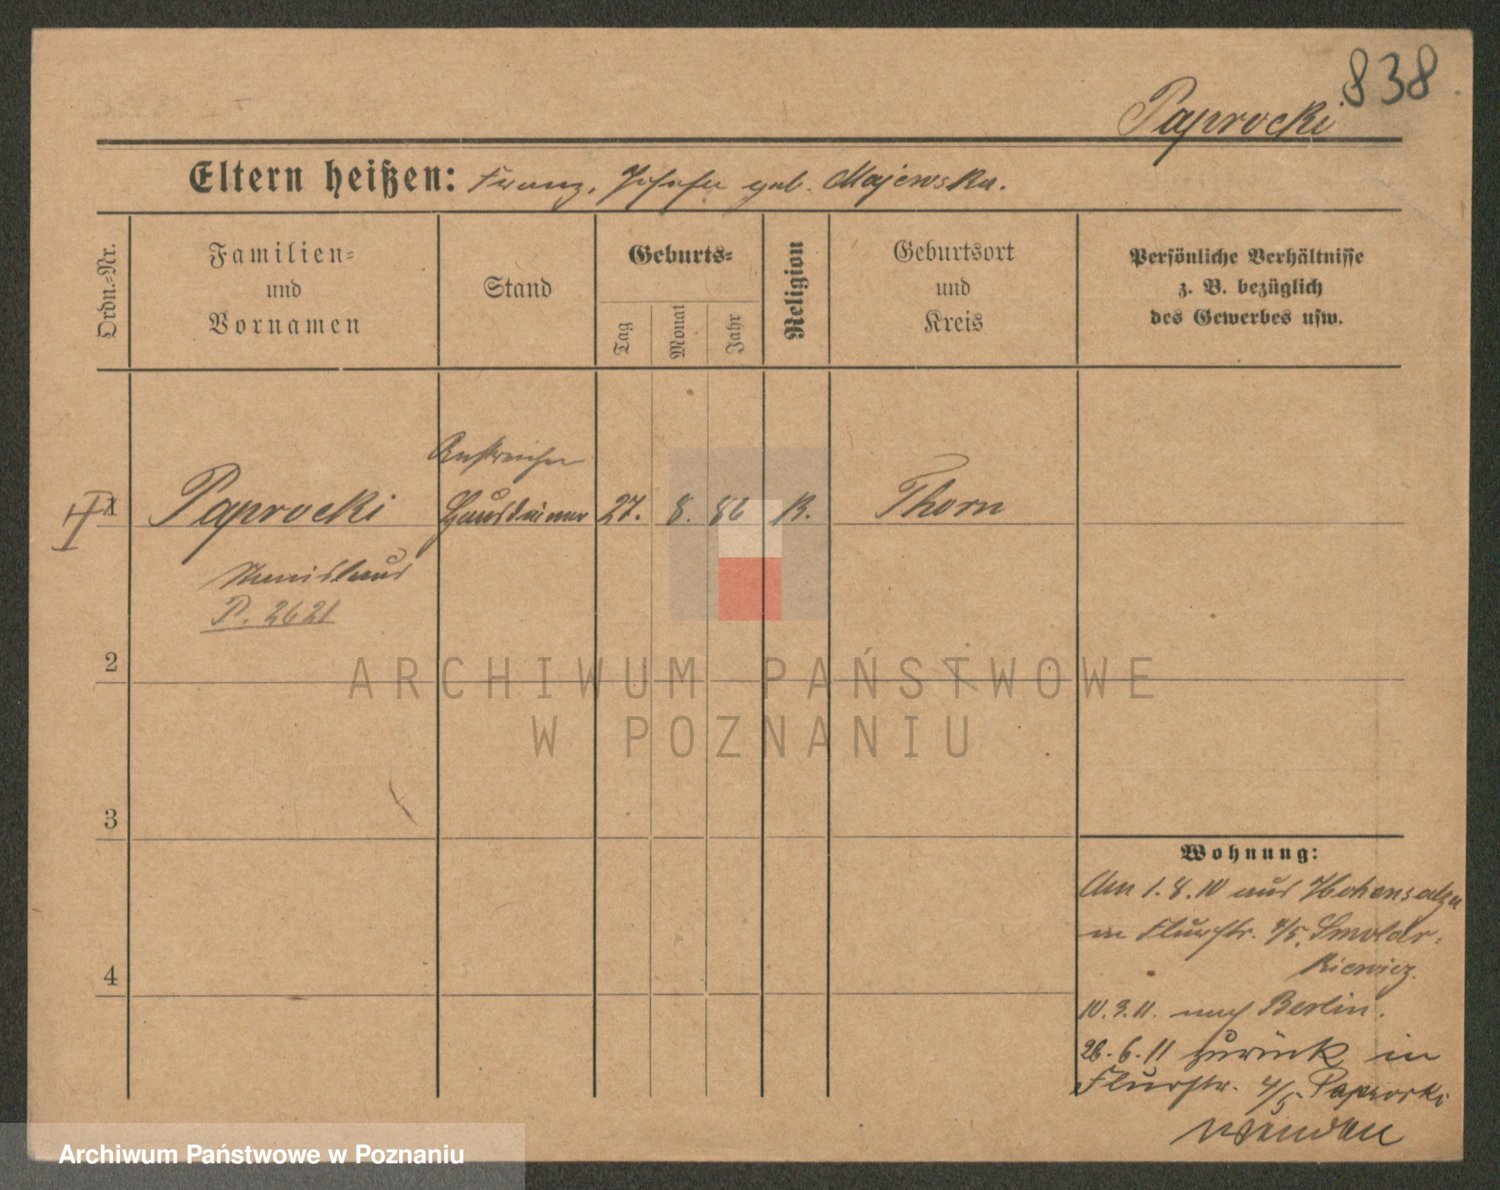 838
Paprocki
Eltern heißen: Franz, Josefa geb. Majewska.
Ordn.-Nr.
Familien-
und
Vornamen
Stand
Geburts-
Tag
Monat
Jahr
Religion
Geburtsort
und
Kreis
Persönliche Verhältnisse
z. B. bezüglich
des Gewerbes usw.
Anstreicher
Paprocki Hausdiener 27. 8. 86 K. Thorn
Stanislaus
P. 2621
2
3
4
ARCHIWUM PAŃSTWOWE
W POZNANIU
Wohnung:
Am 1.8.10 aus Hohensalza
in Flurstr. 4/5. Smolar-
kiewicz.
10.3.11. nach Berlin.
26.6.11 zurück in
Flurstr. 4/5 Paprocki
Archiwum Państwowe w Poznaniu